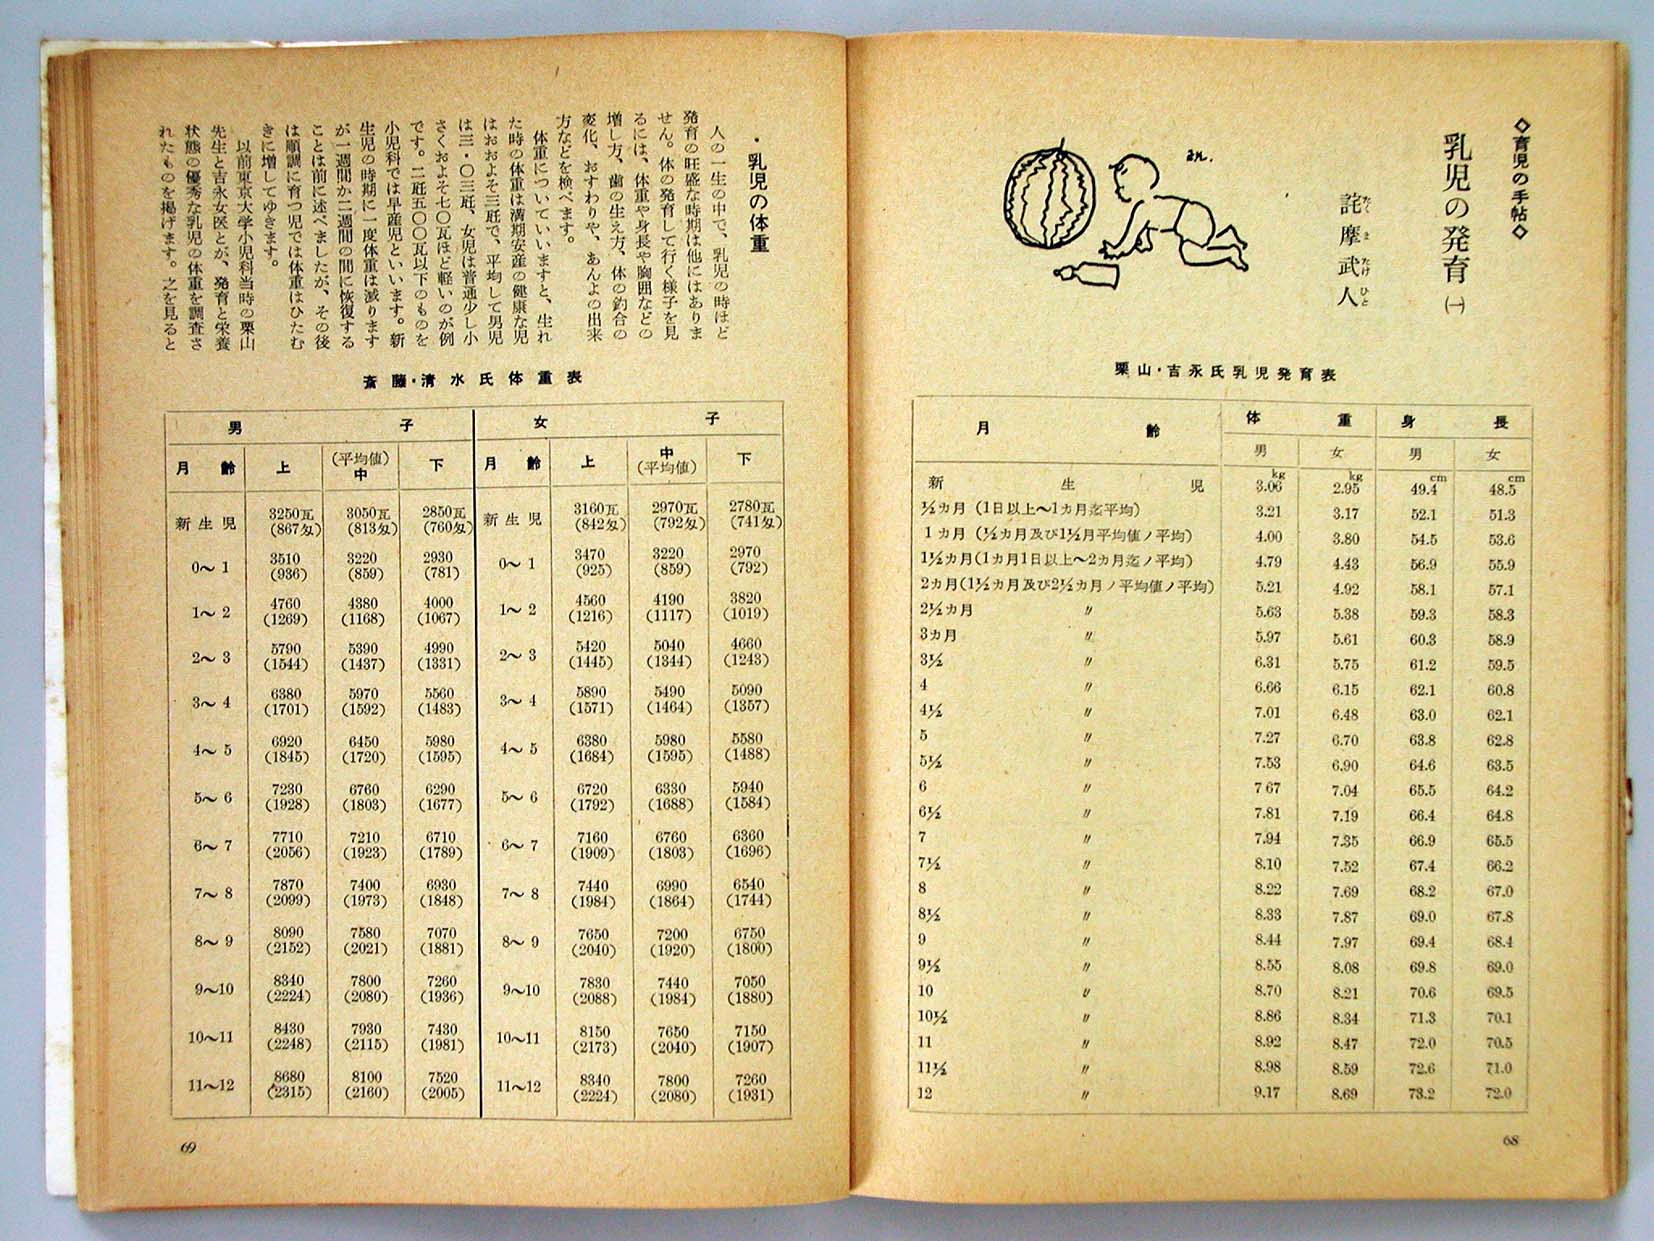 ◇育児の手帖◇
乳児の発育 (一)
詫摩武人
たくまたけひと
栗山・吉永氏乳児発育表
月齢 体重 身長
男 女 男 女
新生児 3.06kg 2.95kg 49.4cm 48.5cm
½カ月(1日以上〜1カ月迄平均) 3.21 3.17 52.1 51.3
1カ月(½カ月及び1½月平均値ノ平均) 4.00 3.80 54.5 53.6
1½カ月(1カ月1日以上〜2カ月迄ノ平均) 4.79 4.43 56.9 55.9
2カ月(1½カ月及び2½カ月ノ平均値ノ平均) 5.21 4.92 58.1 57.1
2½カ月 〃 5.63 5.38 59.3 58.3
3カ月 〃 5.97 5.61 60.3 58.9
3½ 〃 6.31 5.75 61.2 59.5
4 〃 6.66 6.15 62.1 60.8
4½ 〃 7.01 6.48 63.0 62.1
5 〃 7.27 6.70 63.8 62.8
5½ 〃 7.53 6.90 64.6 63.5
6 〃 7 67 7.04 65.5 64.2
6½ 〃 7.81 7.19 66.4 64.8
7 〃 7.94 7.35 66.9 65.5
7½ 〃 8.10 7.52 67.4 66.2
8 〃 8.22 7.69 68.2 67.0
8½ 〃 8.33 7.87 69.0 67.8
9 〃 8.44 7.97 69.4 68.4
9½ 〃 8.55 8.08 69.8 69.0
10 〃 8.70 8.21 70.6 69.5
10½ 〃 8.86 8.34 71.3 70.1
11 〃 8.92 8.47 72.0 70.5
11½ 〃 8.98 8.59 72.6 71.0
12 〃 9.17 8.69 73.2 72.0
68
・乳児の体重
人の一生の中で、乳児の時ほど
発育の旺盛な時期は他にはありま
せん。体の発育して行く様子を見
るには、体重や身長や胸囲などの
増し方、歯の生え方、体の釣合の
変化、おすわりや、あんよの出来
方などを検べます。
体重についていいますと、生れ
た時の体重は満期安産の健康な児
はおおよそ三瓩で、平均して男児
は三・〇三瓩、女児は普通少し小
さくおよそ七〇瓦ほど軽いのが例
です。二瓩五〇〇瓦以下のものを
小児科では早産児といいます。新
生児の時期に一度体重は減ります
が一週間か二週間の間に恢復する
ことは前に述べましたが、その後
は順調に育つ児では体重はひたむ
きに増してゆきます。
以前東京大学小児科当時の栗山
先生と吉永女医とが、発育と栄養
状態の優秀な乳児の体重を調査さ
れたものを掲げます。之を見ると
斎藤・清水氏体重表
男子 女子
月齢 上 (平均値)中 下 月齢 上 中(平均値) 下
新生児 3250瓦 3050瓦 2850瓦 新生児 3160瓦 2970瓦 2780瓦
(867匁) (813匁) (760匁) (842匁) (792匁) (741匁)
0〜1 3510 3220 2930 0〜1 3470 3220 2970
(936) (859) (781) (925) (859) (792)
1〜2 4760 4380 4000 1〜2 4560 4190 3820
(1269) (1168) (1067) (1216) (1117) (1019)
2〜3 5790 5390 4990 2〜3 5420 5040 4660
(1544) (1437) (1331) (1445) (1344) (1243)
3〜4 6380 5970 5560 3〜4 5890 5490 5090
(1701) (1592) (1483) (1571) (1464) (1357)
4〜5 6920 6450 5980 4〜5 6380 5980 5580
(1845) (1720) (1595) (1684) (1595) (1488)
5〜6 7230 6760 6290 5〜6 6720 6330 5940
(1928) (1803) (1677) (1792) (1688) (1584)
6〜7 7710 7210 6710 6〜7 7160 6760 6360
(2056) (1923) (1789) (1909) (1803) (1696)
7〜8 7870 7400 6930 7〜8 7440 6990 6540
(2099) (1973) (1848) (1984) (1864) (1744)
8〜9 8090 7580 7070 8〜9 7650 7200 6750
(2152) (2021) (1881) (2040) (1920) (1800)
9〜10 8340 7800 7260 9〜10 7830 7440 7050
(2224) (2080) (1936) (2088) (1984) (1880)
10〜11 8430 7930 7430 10〜11 8150 7650 7150
(2248) (2115) (1981) (2173) (2040) (1907)
11〜12 8680 8100 7520 11〜12 8340 7800 7260
(2315) (2160) (2005) (2224) (2080) (1931)
69